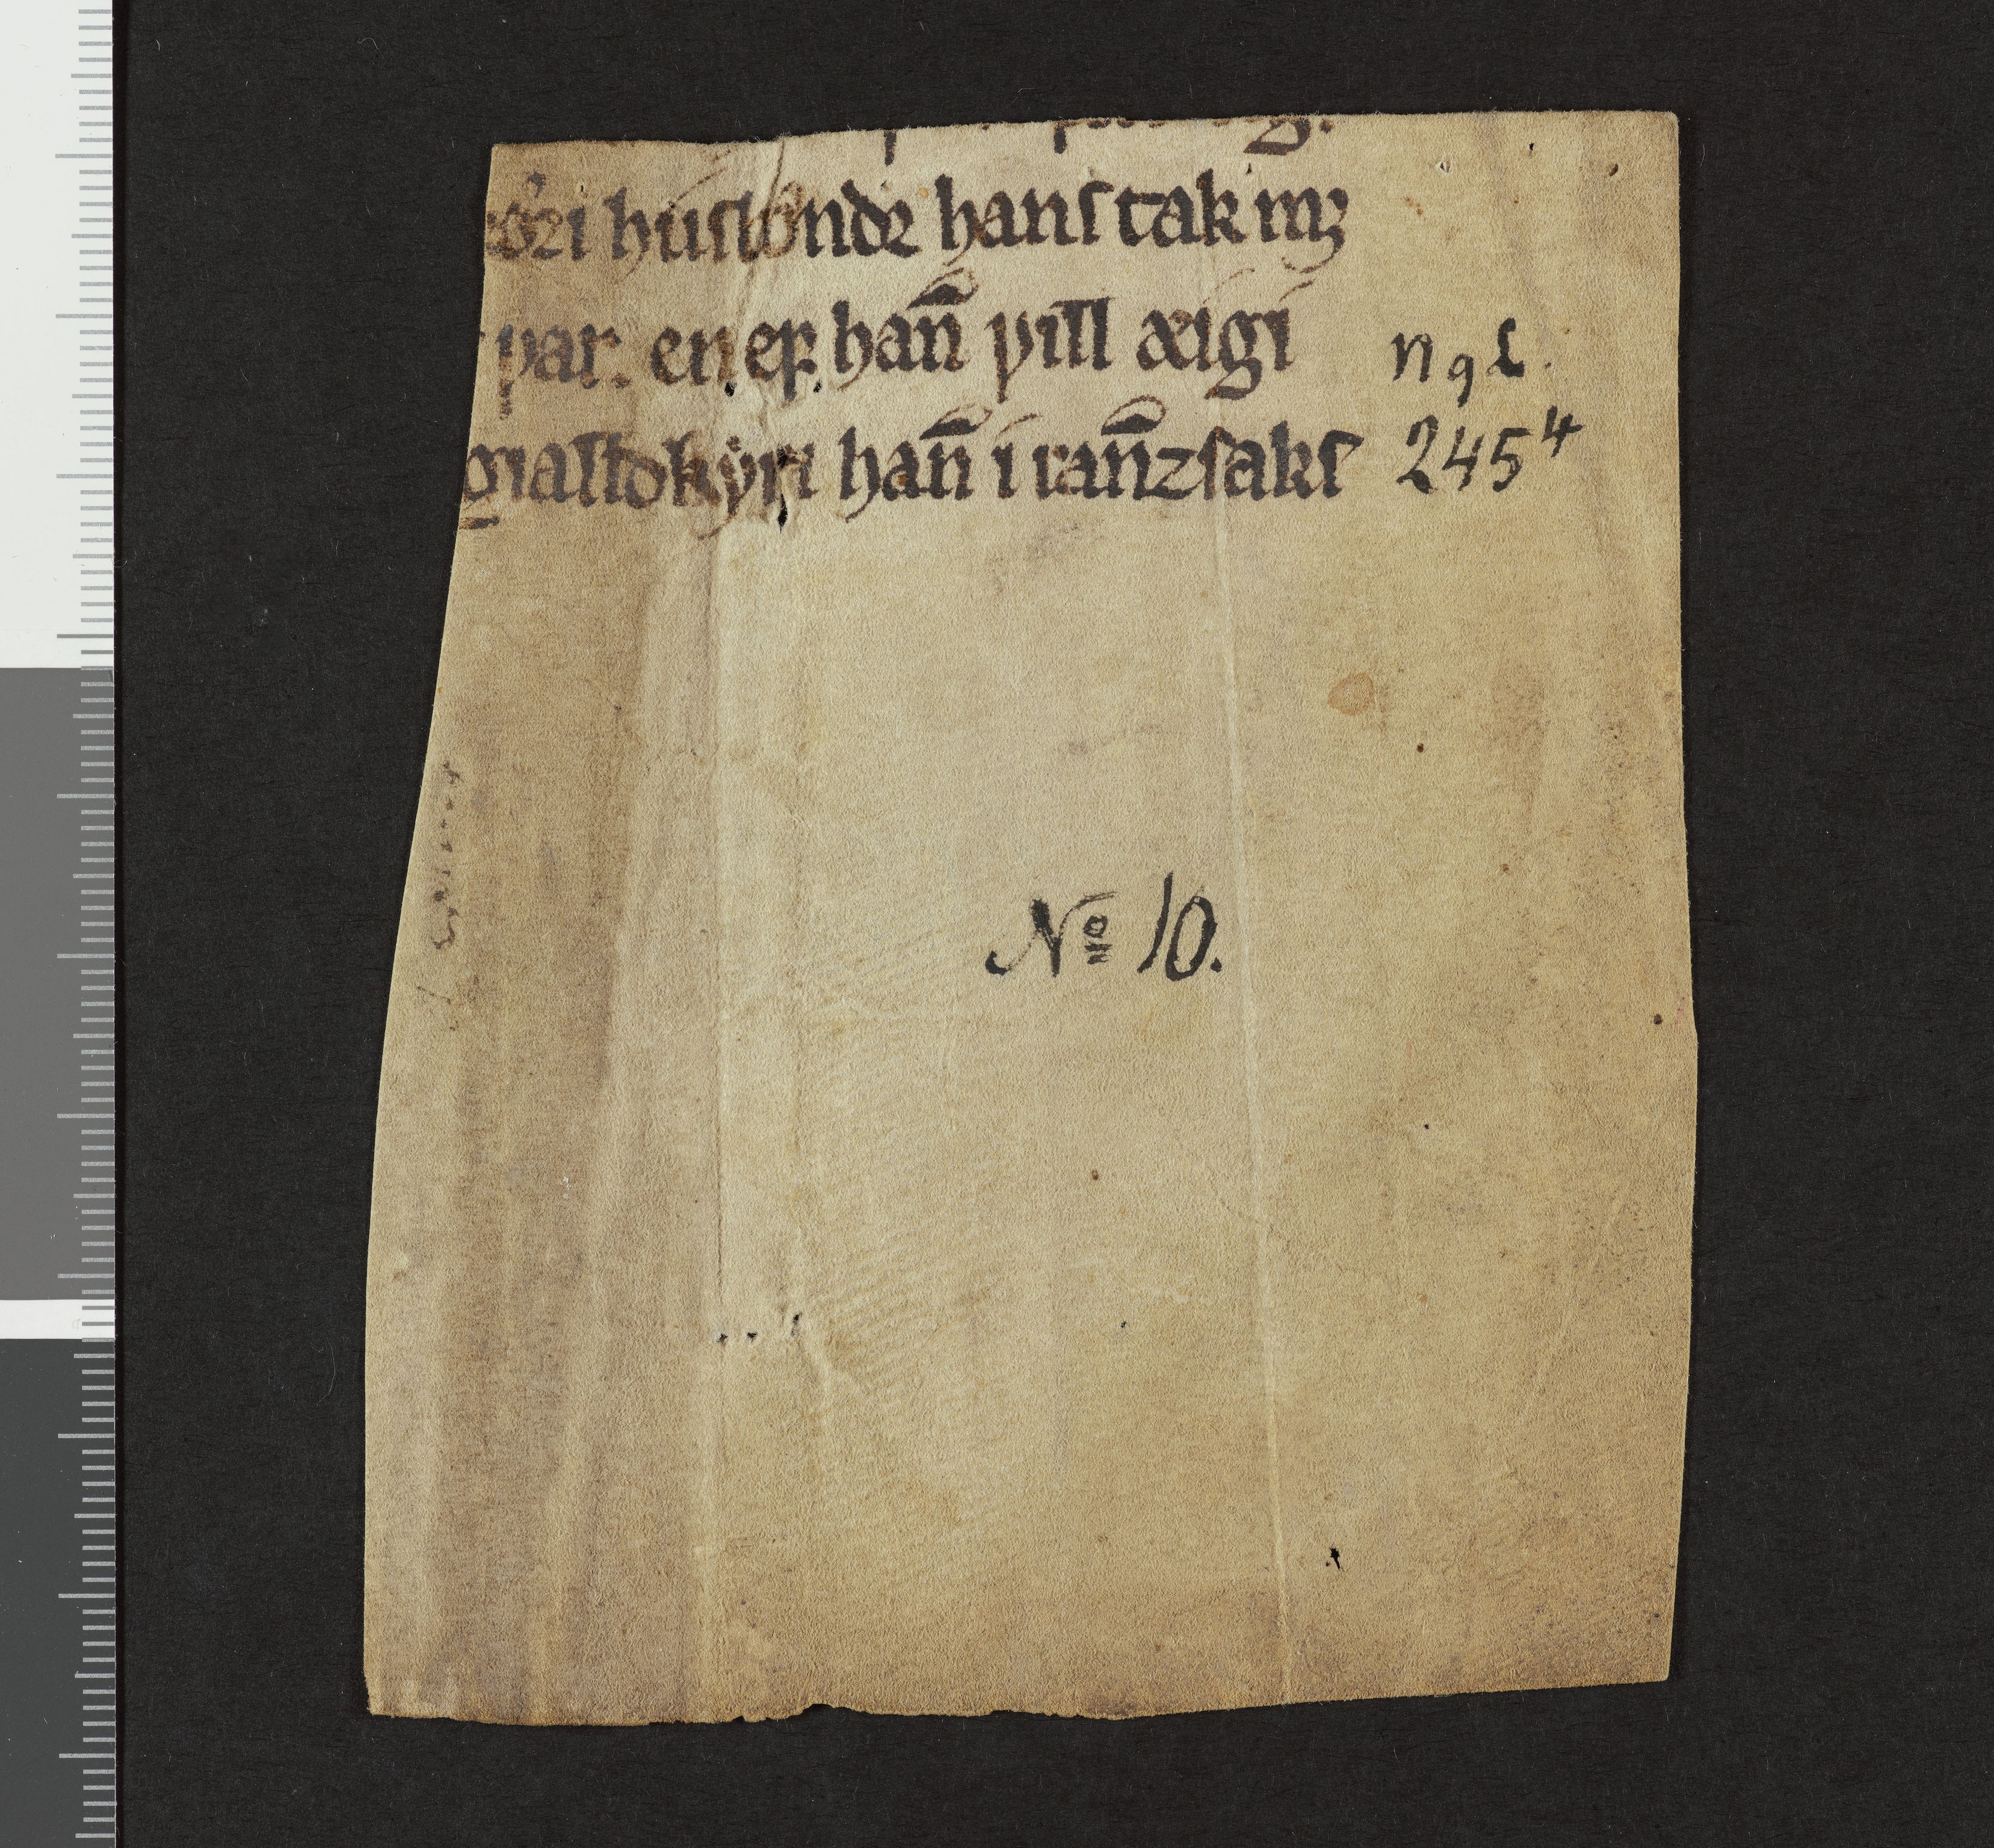 husbondꝛ hans tak mꝫ
ꝩar. en eꝼ han̄ ꝩill æigi
gialld kyꝛi han̄ i ran̄zsaks
NgL.
245⁴
Nº 10.